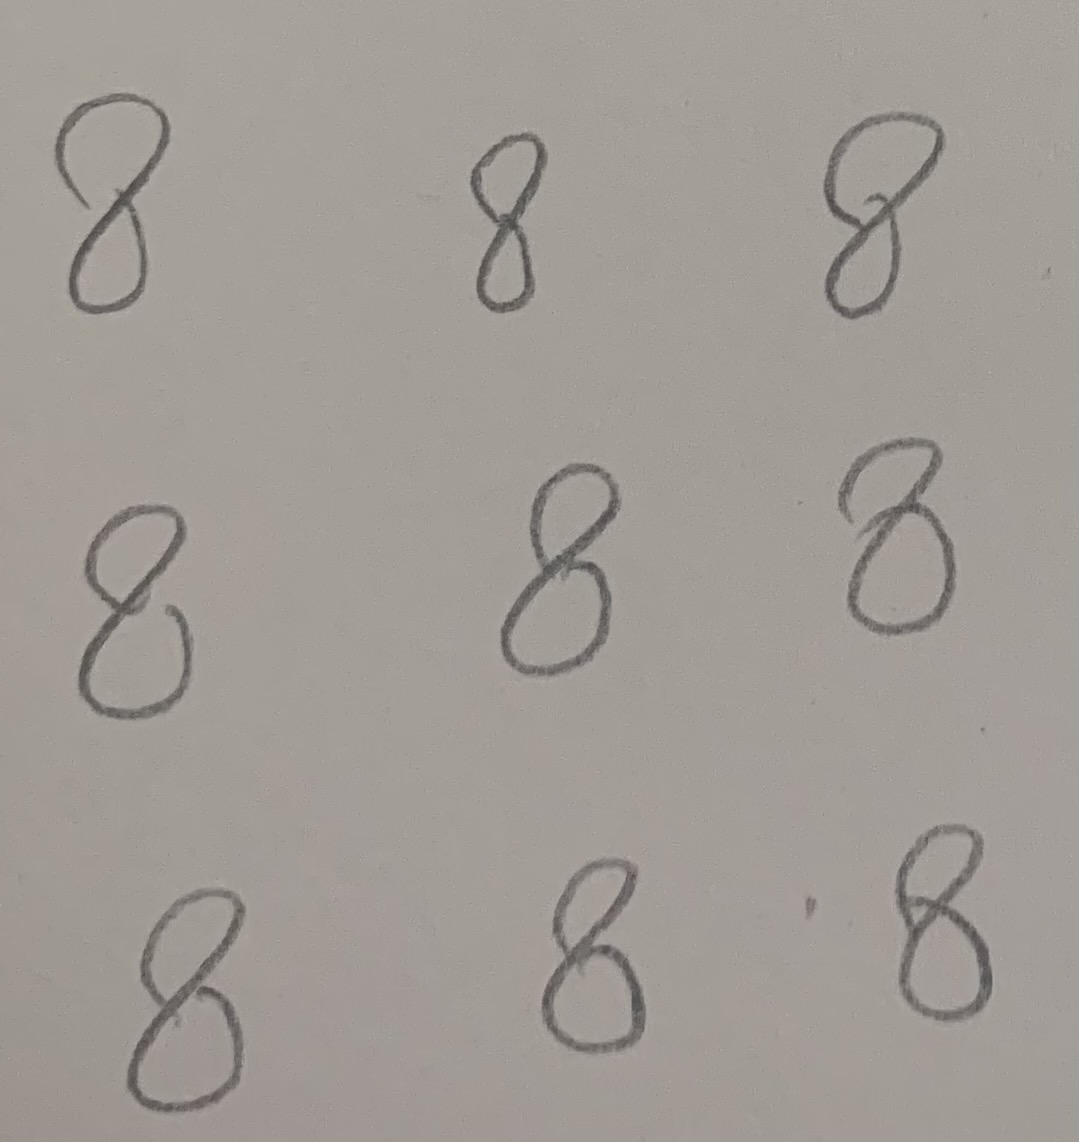 8 8 8
8 8 8
8 8 8